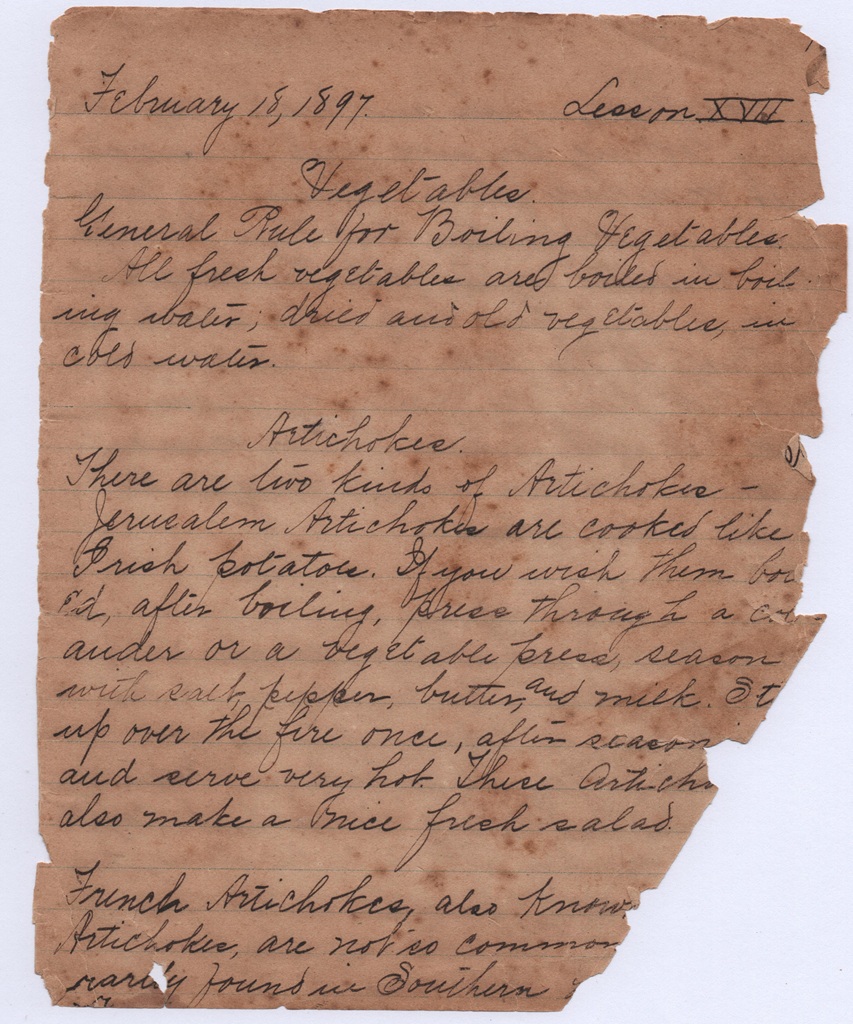 February 18, 1897. Lesson XVII.
Vegetables.
General Rule for Boiling Vegetables.
All fresh vegetables are boiled in boil-
ing water; dried and old vegetables, in
cold water.
Artichokes.
There are two kinds of Artichokes –
Jerusalem Artichokes are cooked like
Irish potatoes. If you wish them boi
ed, after boiling, press through a col-
ander or a vegetable press, season
with salt, pepper, butter, and milk. St
up over the fire once, after season
and serve very hot. These Artich
also make a nice fresh salad.
French Artichokes, also Know
Artichokes, are not so common
rarely found in Southern